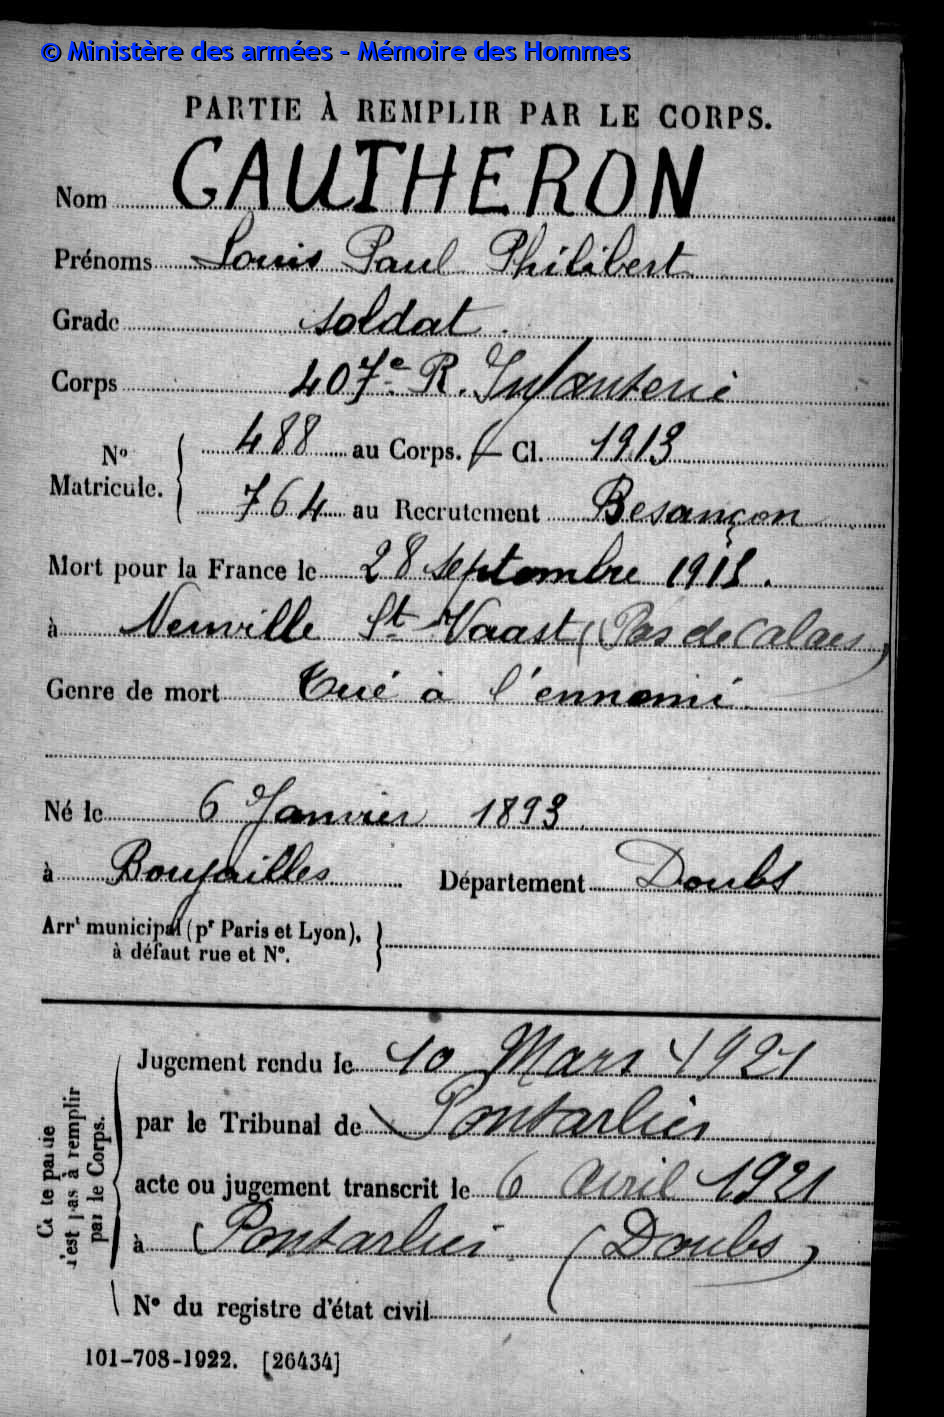 © Ministère des armées - Mémoire des Hommes
PARTIE À REMPLIR PAR LE CORPS.
Nom GAUTHERON
Prénoms Louis Paul Philibert
Grade soldat.
Corps 407e R. Infanterie
No Matricule. 488 au Corps. - Cl. 1913
764 au Recrutement Besançon
Mort pour la France le 28 septembre 1915.
à Neuville St-Vaast (Pas de Calais)
Genre de mort Tué à l'ennemi.
Né le 6 Janvier 1893.
à Boujailles Département Doubs
Arrt municipal (pr Paris et Lyon), à défaut rue et No.
Cette partie n'est pas à remplir par le Corps.
Jugement rendu le 10 Mars 1921
par le Tribunal de Pontarlier
acte ou jugement transcrit le 6 avril 1921
à Pontarlier (Doubs)
No du registre d'état civil
101-708-1922. [26434]